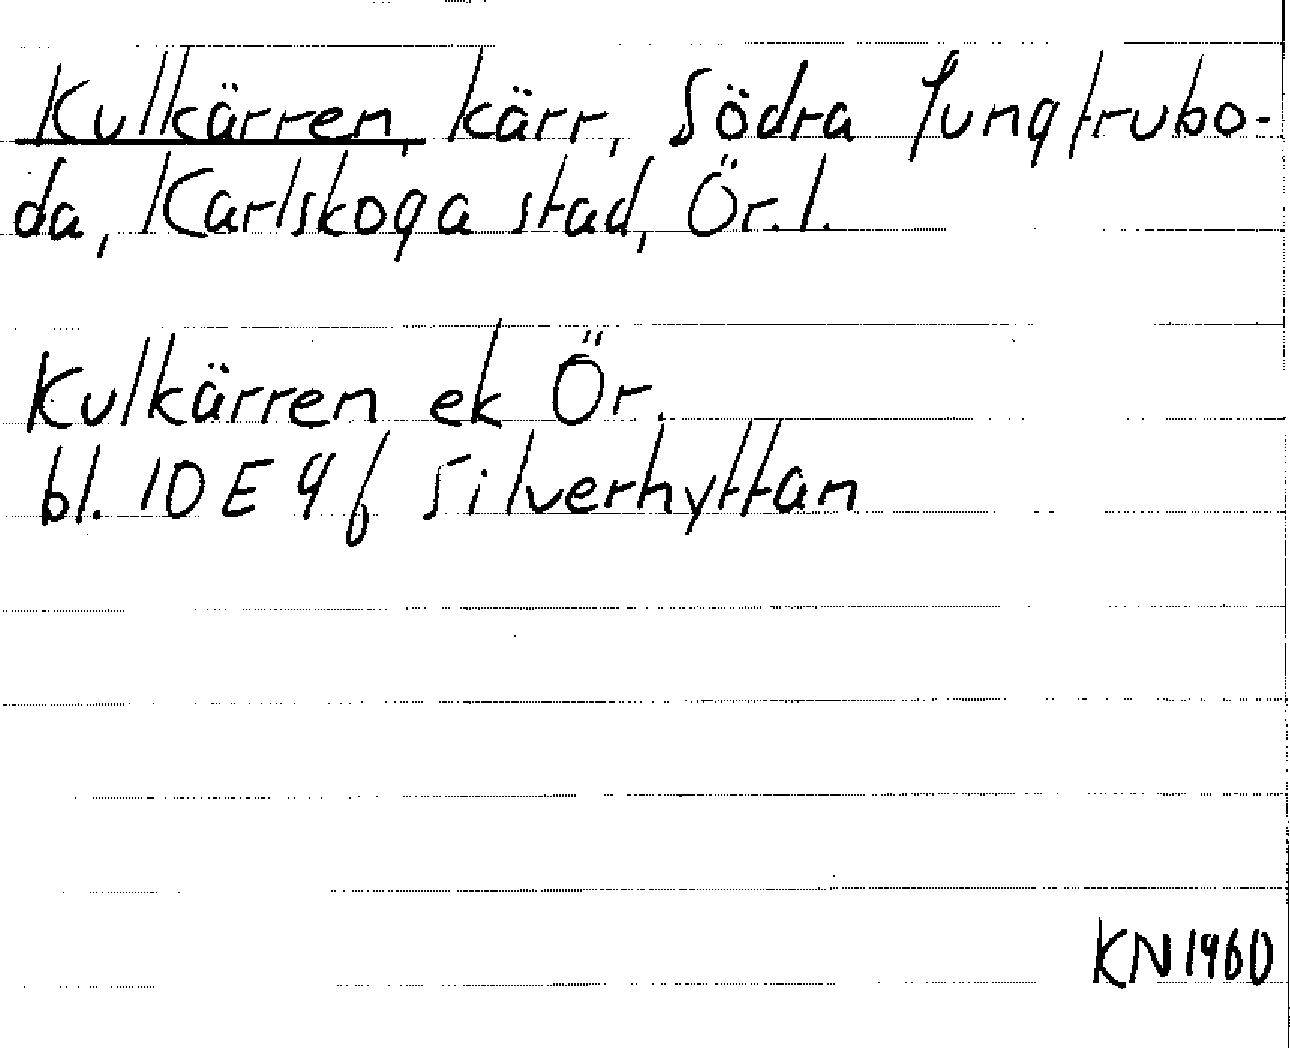 Kulkärren, kärr, Södra Jungfrubo-
da, Karlskoga stad, Ör. l.
Kulkärren ek Ör.
bl. 10E 9f Silverhyttan
KN1960